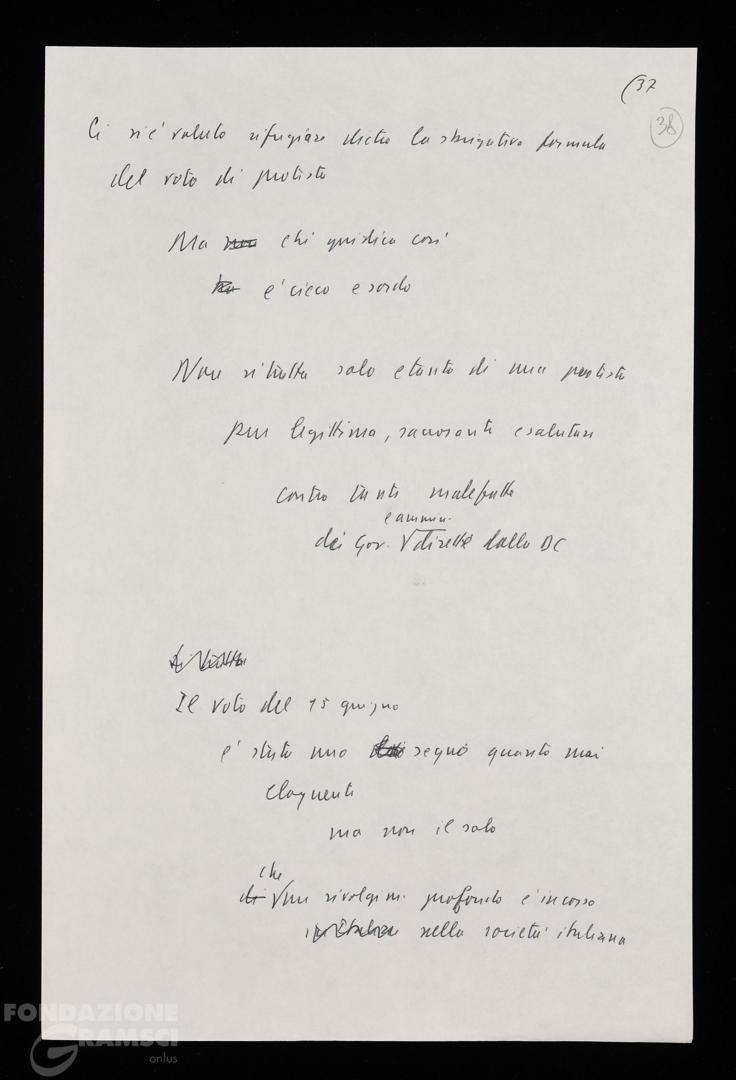 (37
38
Ci si è voluto rifugiare dietro la sbrigativa formula
del voto di protesta
Ma chi giudica così
è cieco e sordo
Non si tratta solo e tanto di una protesta
pur legittima, sacrosanta e salutare
contro tante malefatte
e ammin.
dei Gov. √ dirette dalla DC
Il voto del 15 giugno
è stato uno segno quanto mai
eloquente
ma non il solo
che
di √ un rivolgim. profondo è in corso
in Italia nella società italiana
FONDAZIONE
GRAMSCI
onlus